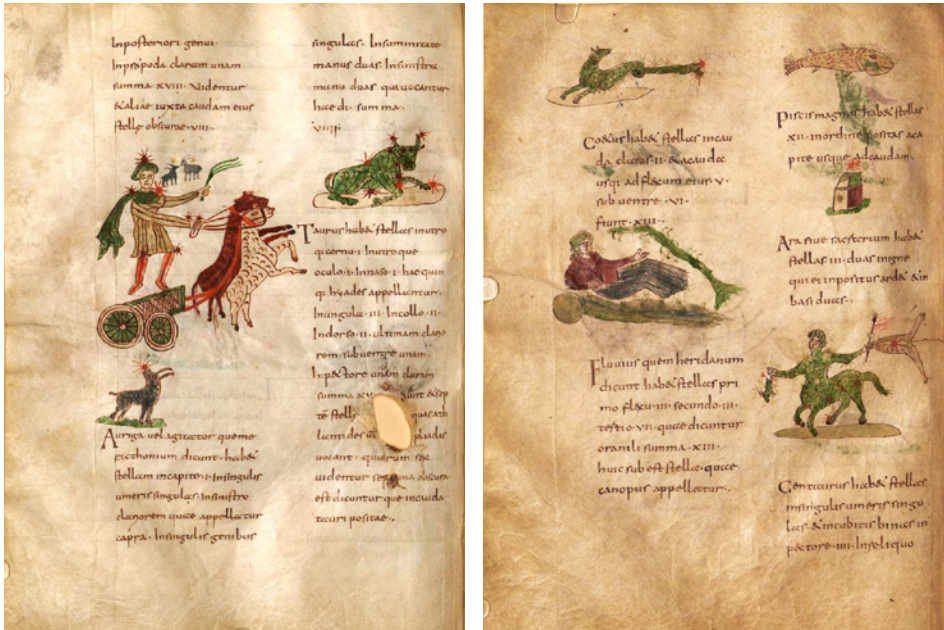 Inposteriori genui·
Inpropoda claram unam
summa xviii· Videntur
&aliae iuxta caudam eius
stelle obscurae viii·
Auriga vel agitator quem e
ricthonium dicunt· hab&
stellam incapite·i·Insingulis
umeris singulas Insinistro
clariorem quae appellatur
capra· Insingulis genibus
singulas· Insummitate
manus duas· Insinistra
manu duas qui vocantur
hoedi· summa·
viiii·
Taurus hab& stellas inutro
que cornu·i·Inutroque
oculo·i·Innaso·i·hae quin
que hyades appellantur·
Inungula·iii·Incollo·ii·
Indorso·ii·ultimam claro
rem· sub ventre unam·
Inpectore unam claram
summa xv
te stell
vocant·
videntur
est dicuntur que incauda
tauri positae·,
Co&us hab& stellas incau
da claras·ii· & a cauda
usq; ad flacum eius·v·
sub ventre·vi·
fiunt·xiii·
Fluvius quem heridanum
dicunt hab& stellas pri
mo flacu·iii·secundo·iii·
tertio·vii·quae dicuntur
oranili summa·xiii·
huic sub est stella quae
canopus appellatur·,
Piscis magnus hab& stellas
xii·inordine positas a ca
pite usque ad caudam·
Ara sive sacrarium hab&
stellas iiii·duas inigne
qui ei inpositus ard& & in
basi duas·,
Centaurus hab& stellas
insingulis umeris singu
las·& incubitis binas in
pectore·iiii·Insel iquo